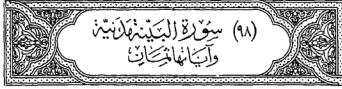 (٩٨) سُورَةُ الْبَيِّنَةِ مَدَنِيَّة
وَآيَاتُهَا ثَمَانٍ